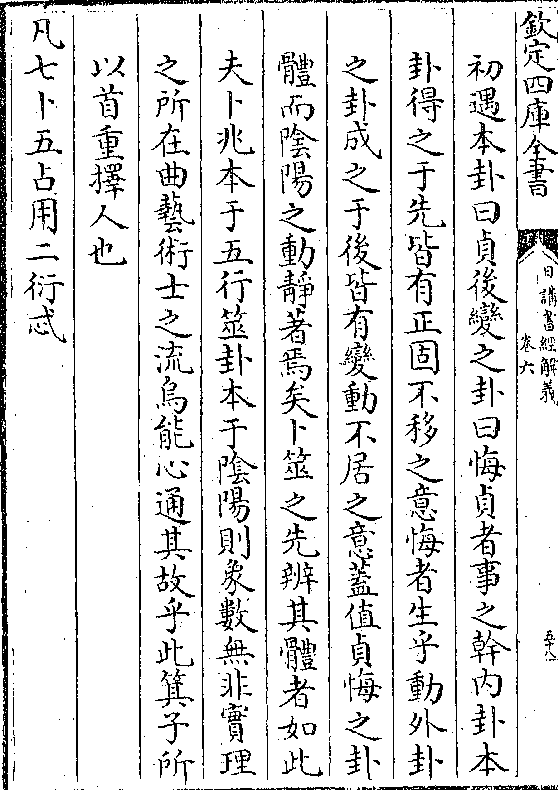 欽定四庫全書
日講書經解義
卷六
五十八
初遇本卦曰貞後變之卦曰悔貞者事之幹内卦本
卦得之于先皆有正固不移之意悔者生乎動外卦
之卦成之于後皆有變動不居之意蓋值貞悔之卦
體而陰陽之動靜著焉矣卜筮之先辨其體者如此
夫卜兆本于五行筮卦本于陰陽則象數無非實理
之所在曲藝術士之流烏能心通其故乎此箕子所
以首重擇人也
凡七卜五占用二衍忒